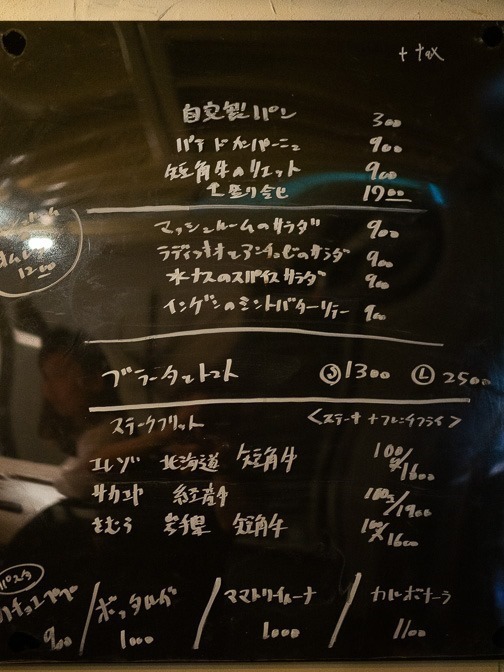 + tax
自家製パン 300
パテドカンパーニュ 900
短角牛のリエット 900
↑盛り合せ 1700
マッシュルームのサラダ 900
ラディッシュとアンチョビのサラダ 900
水ナスのスパイスサラダ 900
インゲンのミントバターソテー 900
1200
ブラータとトマト Ⓢ1300 Ⓛ2500
ステークフリット <ステーキ+フレンチフライ>
エレゾ 北海道 短角牛 100g/1600
サカエヤ 経産牛 100g/1900
きむら 岩手県 短角牛 100g/1600
パスタ
カチョエペペ / ボッタルガ / ママトリチャーナ / カルボナーラ
900 1000 1000 1100